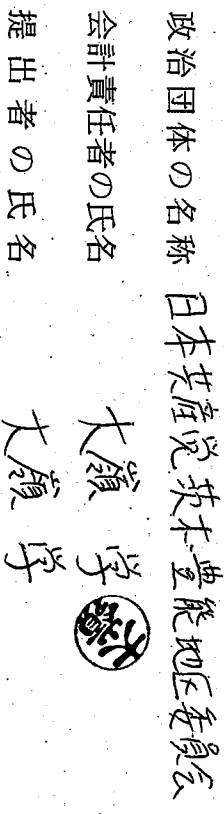 政治団体の名称 日本共産党茨木・豊能地区委員会
会計責任者の氏名 大嶺 学
提出者の氏名 大嶺 学